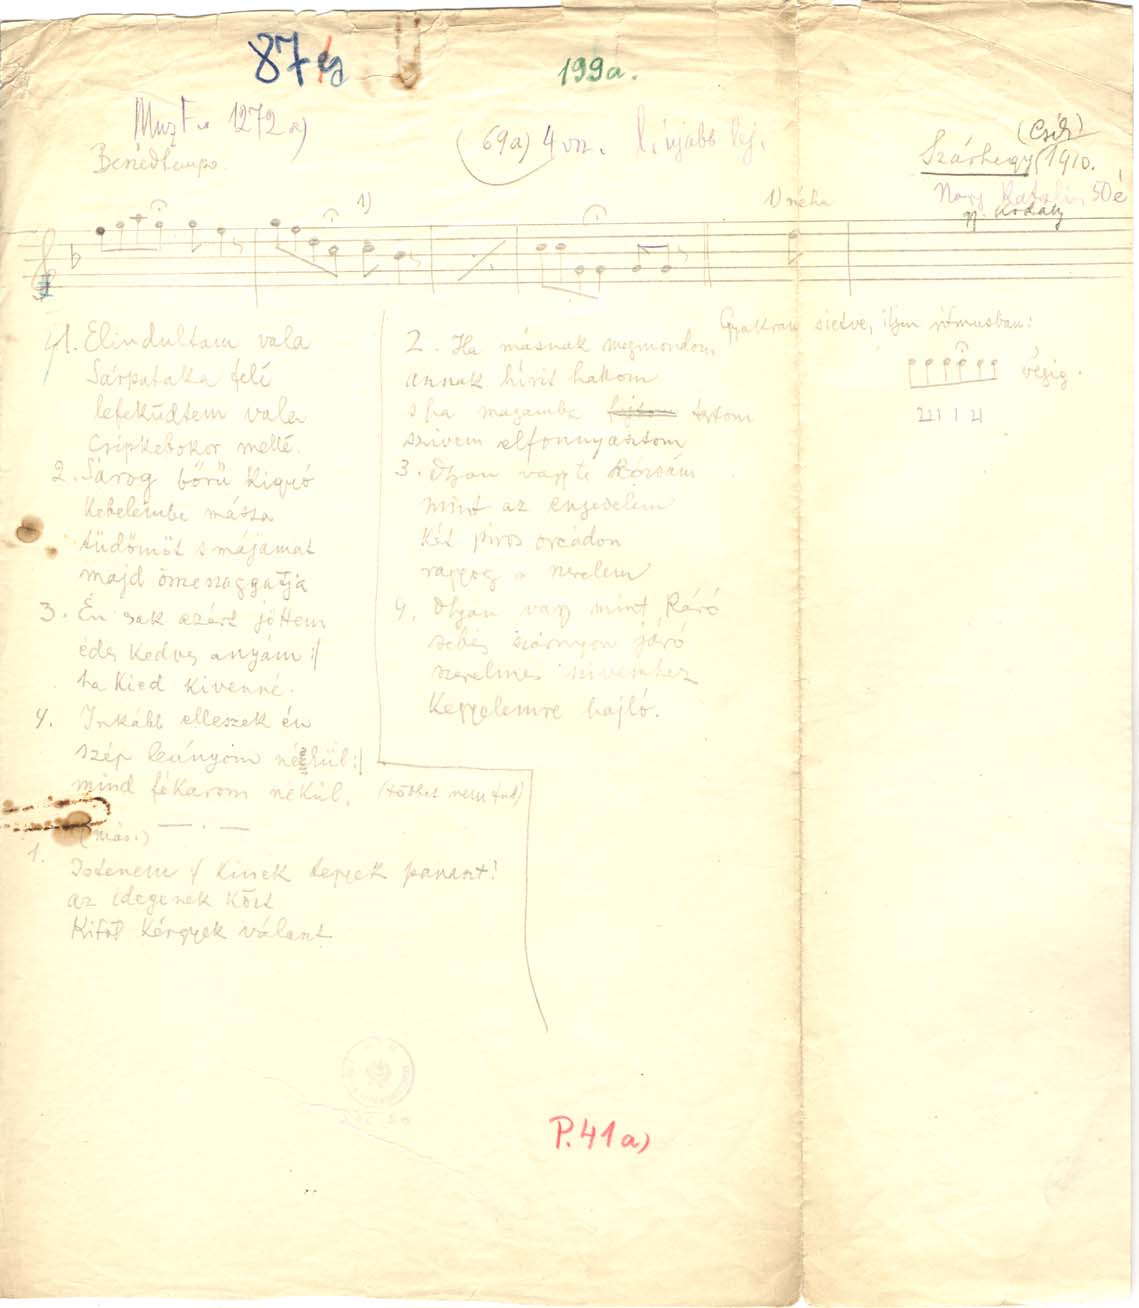 87
199a.
MuzF. 1272 a)
(69a) 4 vsz. l. újabb lej.
(Csík)
Szárhegy 1910.
Beszédtempo.
Nagy Katalin 50 é
Gy. Kodály
1)
1) néha
Gyakran sietve, ilyen ritmusban:
végig.
1. Elindultam vala
Sárpataka felé
lefeküdtem vala
Csipkebokor mellé.
2. Sárog bőrű kigyó
Kebelembe mássa
tüdőmöt s májamat
majd össze szaggatja
3. Én sak azért jöttem
édes kedves anyám :/
ha kied kivenné.
4. Inkább elleszek én
szép leányom nékül :/
mind fékarom nékül. (többet nem tud)
(más.)
1. Istenem :/ kinek tegyek panaszt!
az idegenek közt
Kitől kérgyek választ
2. Ha másnak megmondom
annak hírit hallom
s ha magamba tartom
szivem elfonnyasztom
3. Olyan vagy te Rózsám
mint az engedelem
Két piros orcádon
ragyog a szerelem
4. Olyan vagy mint Ráró
sebes szárnyon járó
szerelmes szivemhez
Kegyelemre hajló.
P. 41 a)